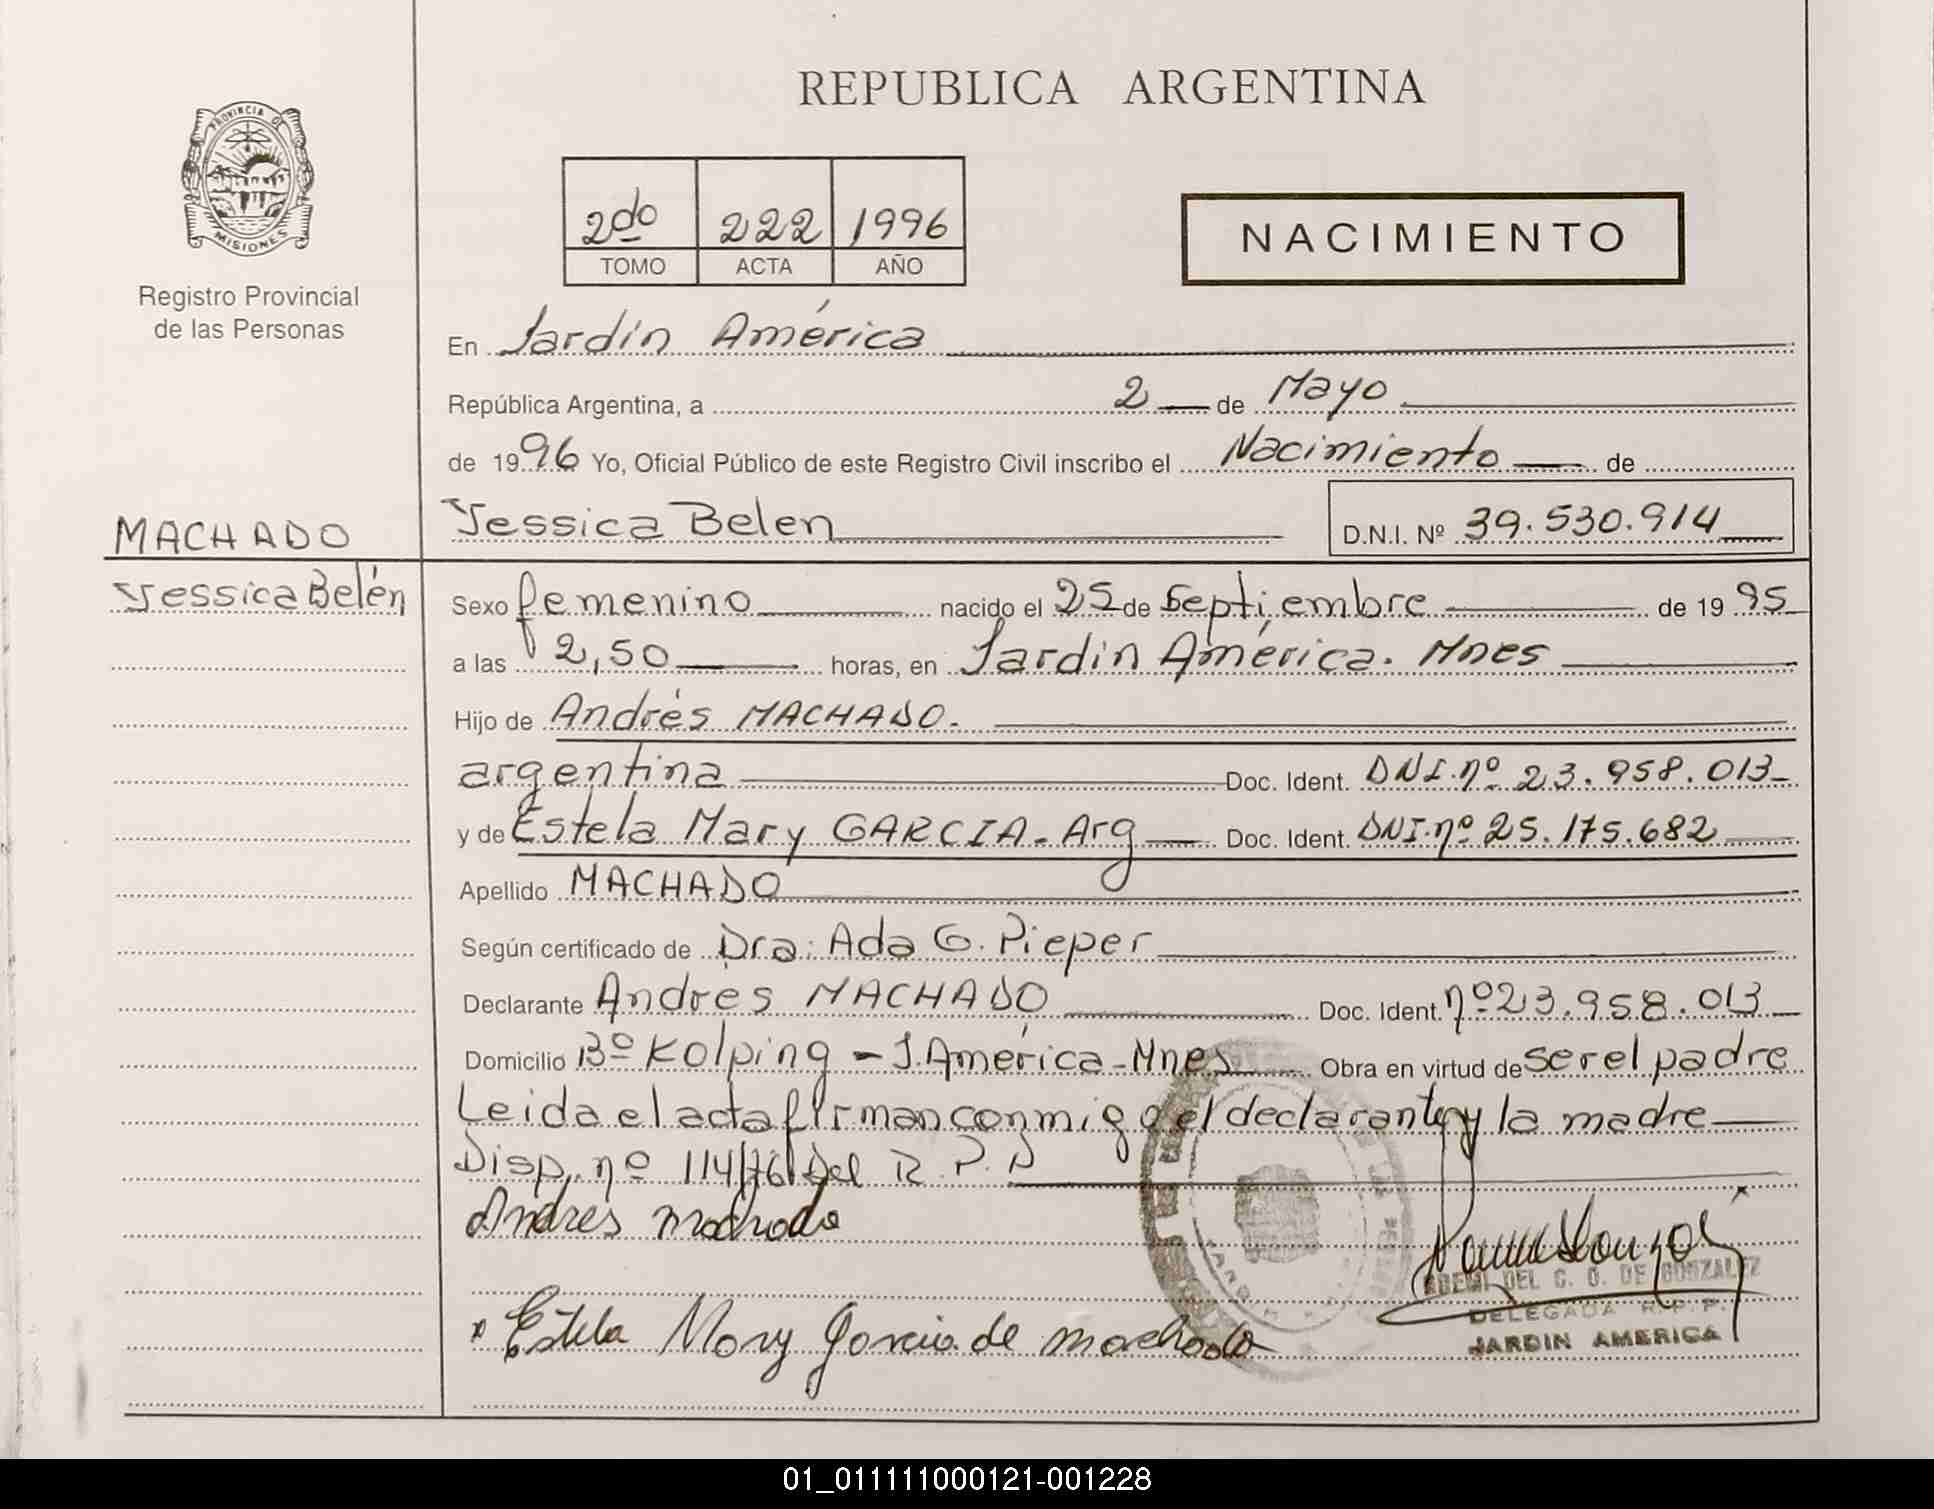 REPUBLICA ARGENTINA
PROVINCIA DE
MISIONES
Registro Provincial
de las Personas
2do 222 1996
TOMO ACTA AÑO
NACIMIENTO
En Jardín América
República Argentina, a 2 de Mayo
de 1996 Yo, Oficial Público de este Registro Civil inscribo el Nacimiento de
MACHADO
Jessica Belén
Jessica Belen D.N.I. Nº 39.530.914
Sexo femenino nacido el 25 de Septiembre de 1995
a las 2,50 horas, en Jardín América. Mnes
Hijo de Andrés MACHADO.
argentina Doc. Ident. DNI.nº 23.958.013
y de Estela Mary GARCIA. Arg Doc. Ident. DNI.nº 25.175.682
Apellido MACHADO
Según certificado de Dra: Ada G. Pieper
Declarante Andres MACHADO Doc. Ident. nº 23.958.013
Domicilio Bº Kolping - J. América - Mnes Obra en virtud de ser el padre
Leida el acta firman conmigo el declarante y la madre
Disp. nº 114/76 Del R. P. P
Andres machado
DEL C. G. DE GONZALEZ
DELEGADA R. P. P.
JARDIN AMERICA
Estela Mary Garcia de machado
01_011111000121-001228